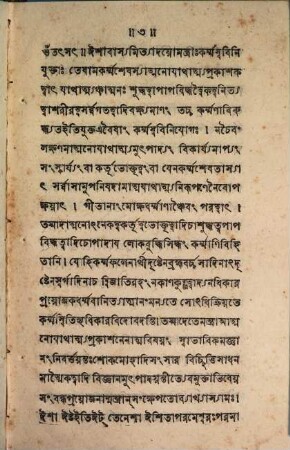 ॥ ৩ ॥
ওঁতৎসৎ॥ ঈশাবাস্যমিত্যাদয়োমন্ত্রাঃকর্ম্মস্ববিনি
যুক্তাঃ তেষামকর্ম্মশেষস্যাত্মনোযাথাত্ম্যপ্রকাশক
ত্বাৎ যাথাত্ম্যঞ্চাত্মনঃ শুদ্ধত্বাপাপবিদ্ধত্বৈকত্বনিত্য
ত্বাশরীরত্বসর্ব্বগতত্বাদিবক্ষ্যমাণং তচ্চ কর্ম্মণাবিরু
ধ্যতইতিযুক্তএবৈষাং কর্ম্মস্ববিনিযোগঃ । নহ্যেবং
লক্ষণমাত্মনোযাথাত্ম্যমুৎপাদ্যং বিকার্য্যমাপ্যং
সংস্কার্য্যং বা কর্তৃভোক্তৃরূপং বা যেনকর্ম্মশেষতাস্যা
ৎ সর্ব্বাসামুপনিষদামাত্মযাথাত্ম্যনিরূপণেনৈবোপ
ক্ষয়াৎ । গীতানাং মোক্ষধর্ম্মাণাঞ্চৈবং পরত্বাৎ ।
তস্মাদাত্মনোনেকত্বকর্তৃত্বভোক্তৃত্বাদিচাশুদ্ধত্বপাপ
বিদ্ধত্বাদিচোপাদায় লোকবুদ্ধিসিদ্ধং কর্ম্মাণিবিহি
তানি । যোহিকর্ম্মফলেনার্থীদৃষ্টেনব্রহ্মবর্চ্চসাদিনাদৃ
ষ্টেনস্বর্গাদিনাচ দ্বিজাতিরহং নকাণকুব্জত্বাদ্যনধিকার
প্রয়োজকধর্ম্মবানিত্যাত্মানংমন্যতে সোঽধিক্রিয়তে
কর্ম্মস্বিতিহ্যধিকারবিদোবদন্তি। তস্মাদেতেমন্ত্রাআত্ম
নোযাথাত্ম্যপ্রকাশনেনাত্মবিষয়ং স্বাভাবিকমজ্ঞা
নংনিবর্ত্তয়ন্তঃশোকমোহাদিসংসার বিচ্ছিত্তিসাধন
মাত্মৈকত্বাদি বিজ্ঞানমুৎপাদয়ন্তীত্যেবমুক্তাভিধেয়
সম্বন্ধপ্রয়োজনান্মন্ত্রান্সংক্ষেপতোব্যাখ্যাস্যামঃ।
ঈশা ঈষ্টইতীট্ তেনেশা ঈশিতাপরমেশ্বরঃপরমা